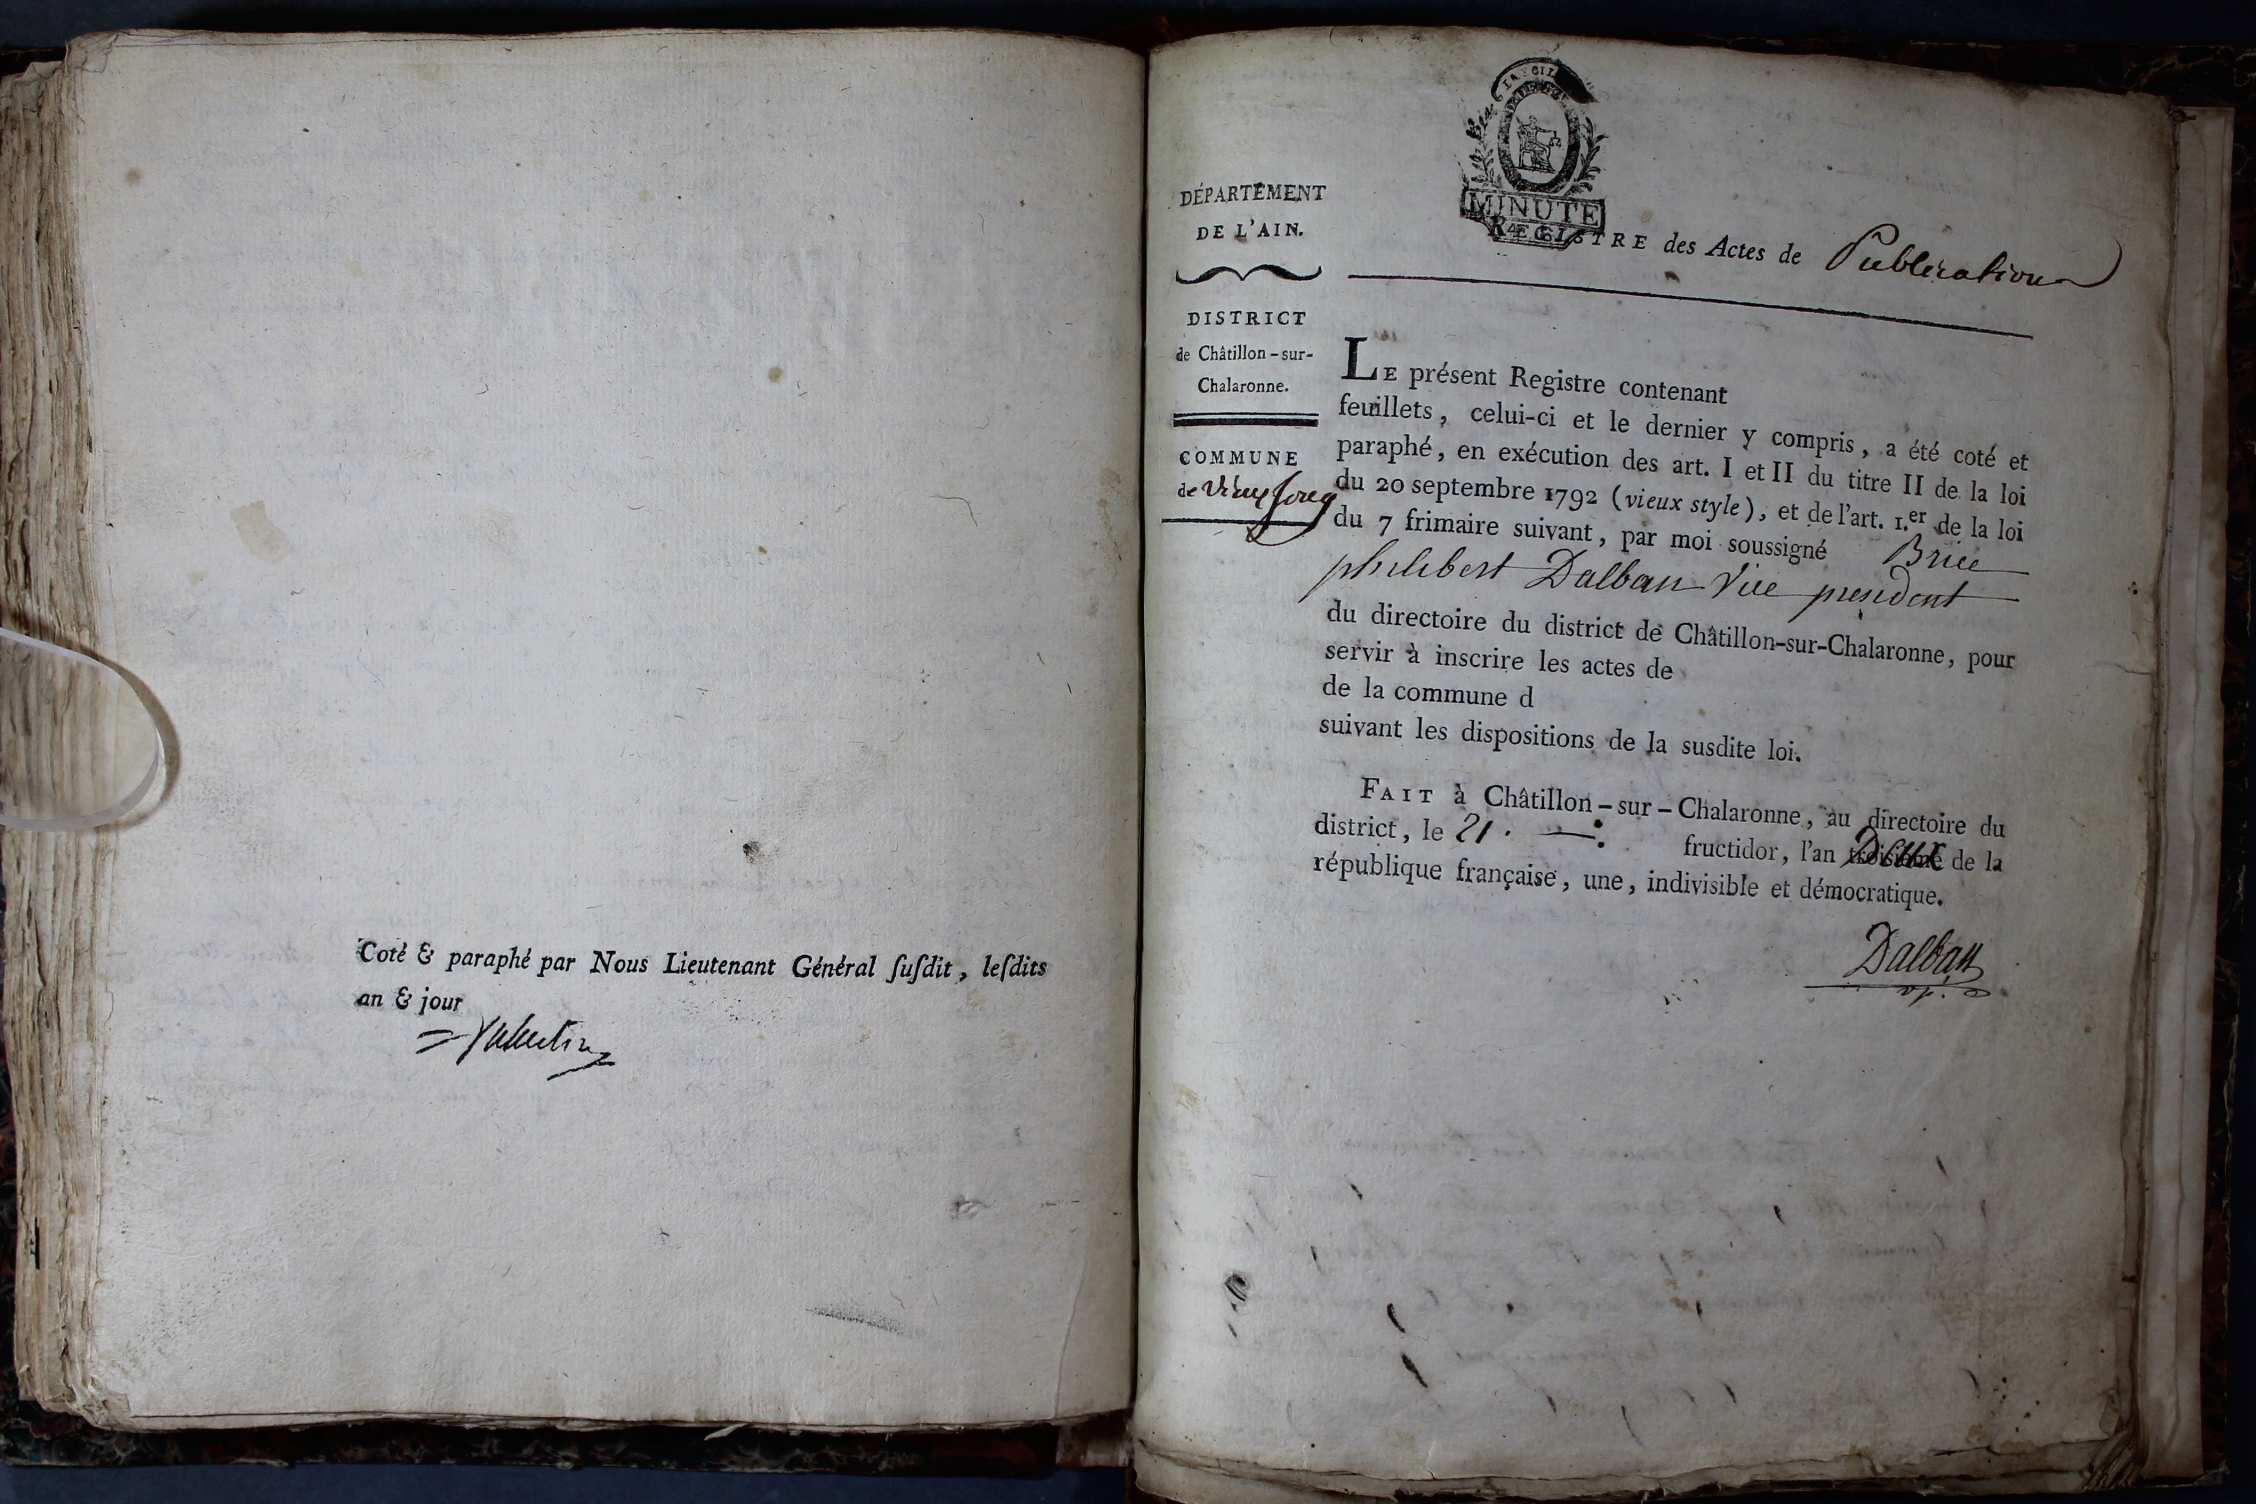 Coté & paraphé par Nous Lieutenant Général ſuſdit, leſdits
an & jour
MINUTE
DÉPARTEMENT
DE L'AIN.
REGISTRE des Actes de Publication
DISTRICT
de Châtillon-sur-
Chalaronne.
COMMUNE
de
LE présent Registre contenant
feuillets, celui-ci et le dernier y compris, a été coté et
paraphé, en exécution des art. I et II du titre II de la loi
du 20 septembre 1792 (vieux style), et de l'art. 1.er de la loi
du 7 frimaire suivant, par moi soussigné Brice
philibert Dalban Vice président
du directoire du district de Châtillon-sur-Chalaronne, pour
servir à inscrire les actes de
de la commune d
suivant les dispositions de la susdite loi.
FAIT à Châtillon-sur-Chalaronne, au directoire du
district, le 21. fructidor, l'an Deux de la
république française, une, indivisible et démocratique.
Dalban
v.p.